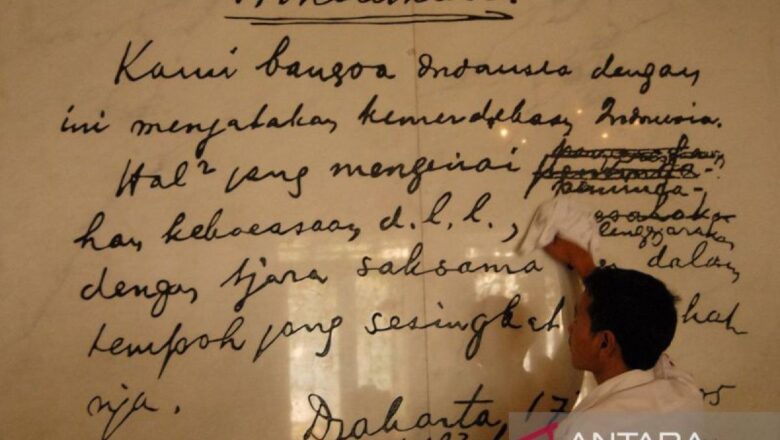 Kami bangsa Indonesia dengan
ini menjatakan kemerdekaan Indonesia.
Hal² jang mengenai
peminda-
han kekoeasaan, d.l.l.,
lenggarakan
dengan tjara saksama dalam
tempoh jang sesingkat
nja.
Djakarta, 17
05
ANTARA